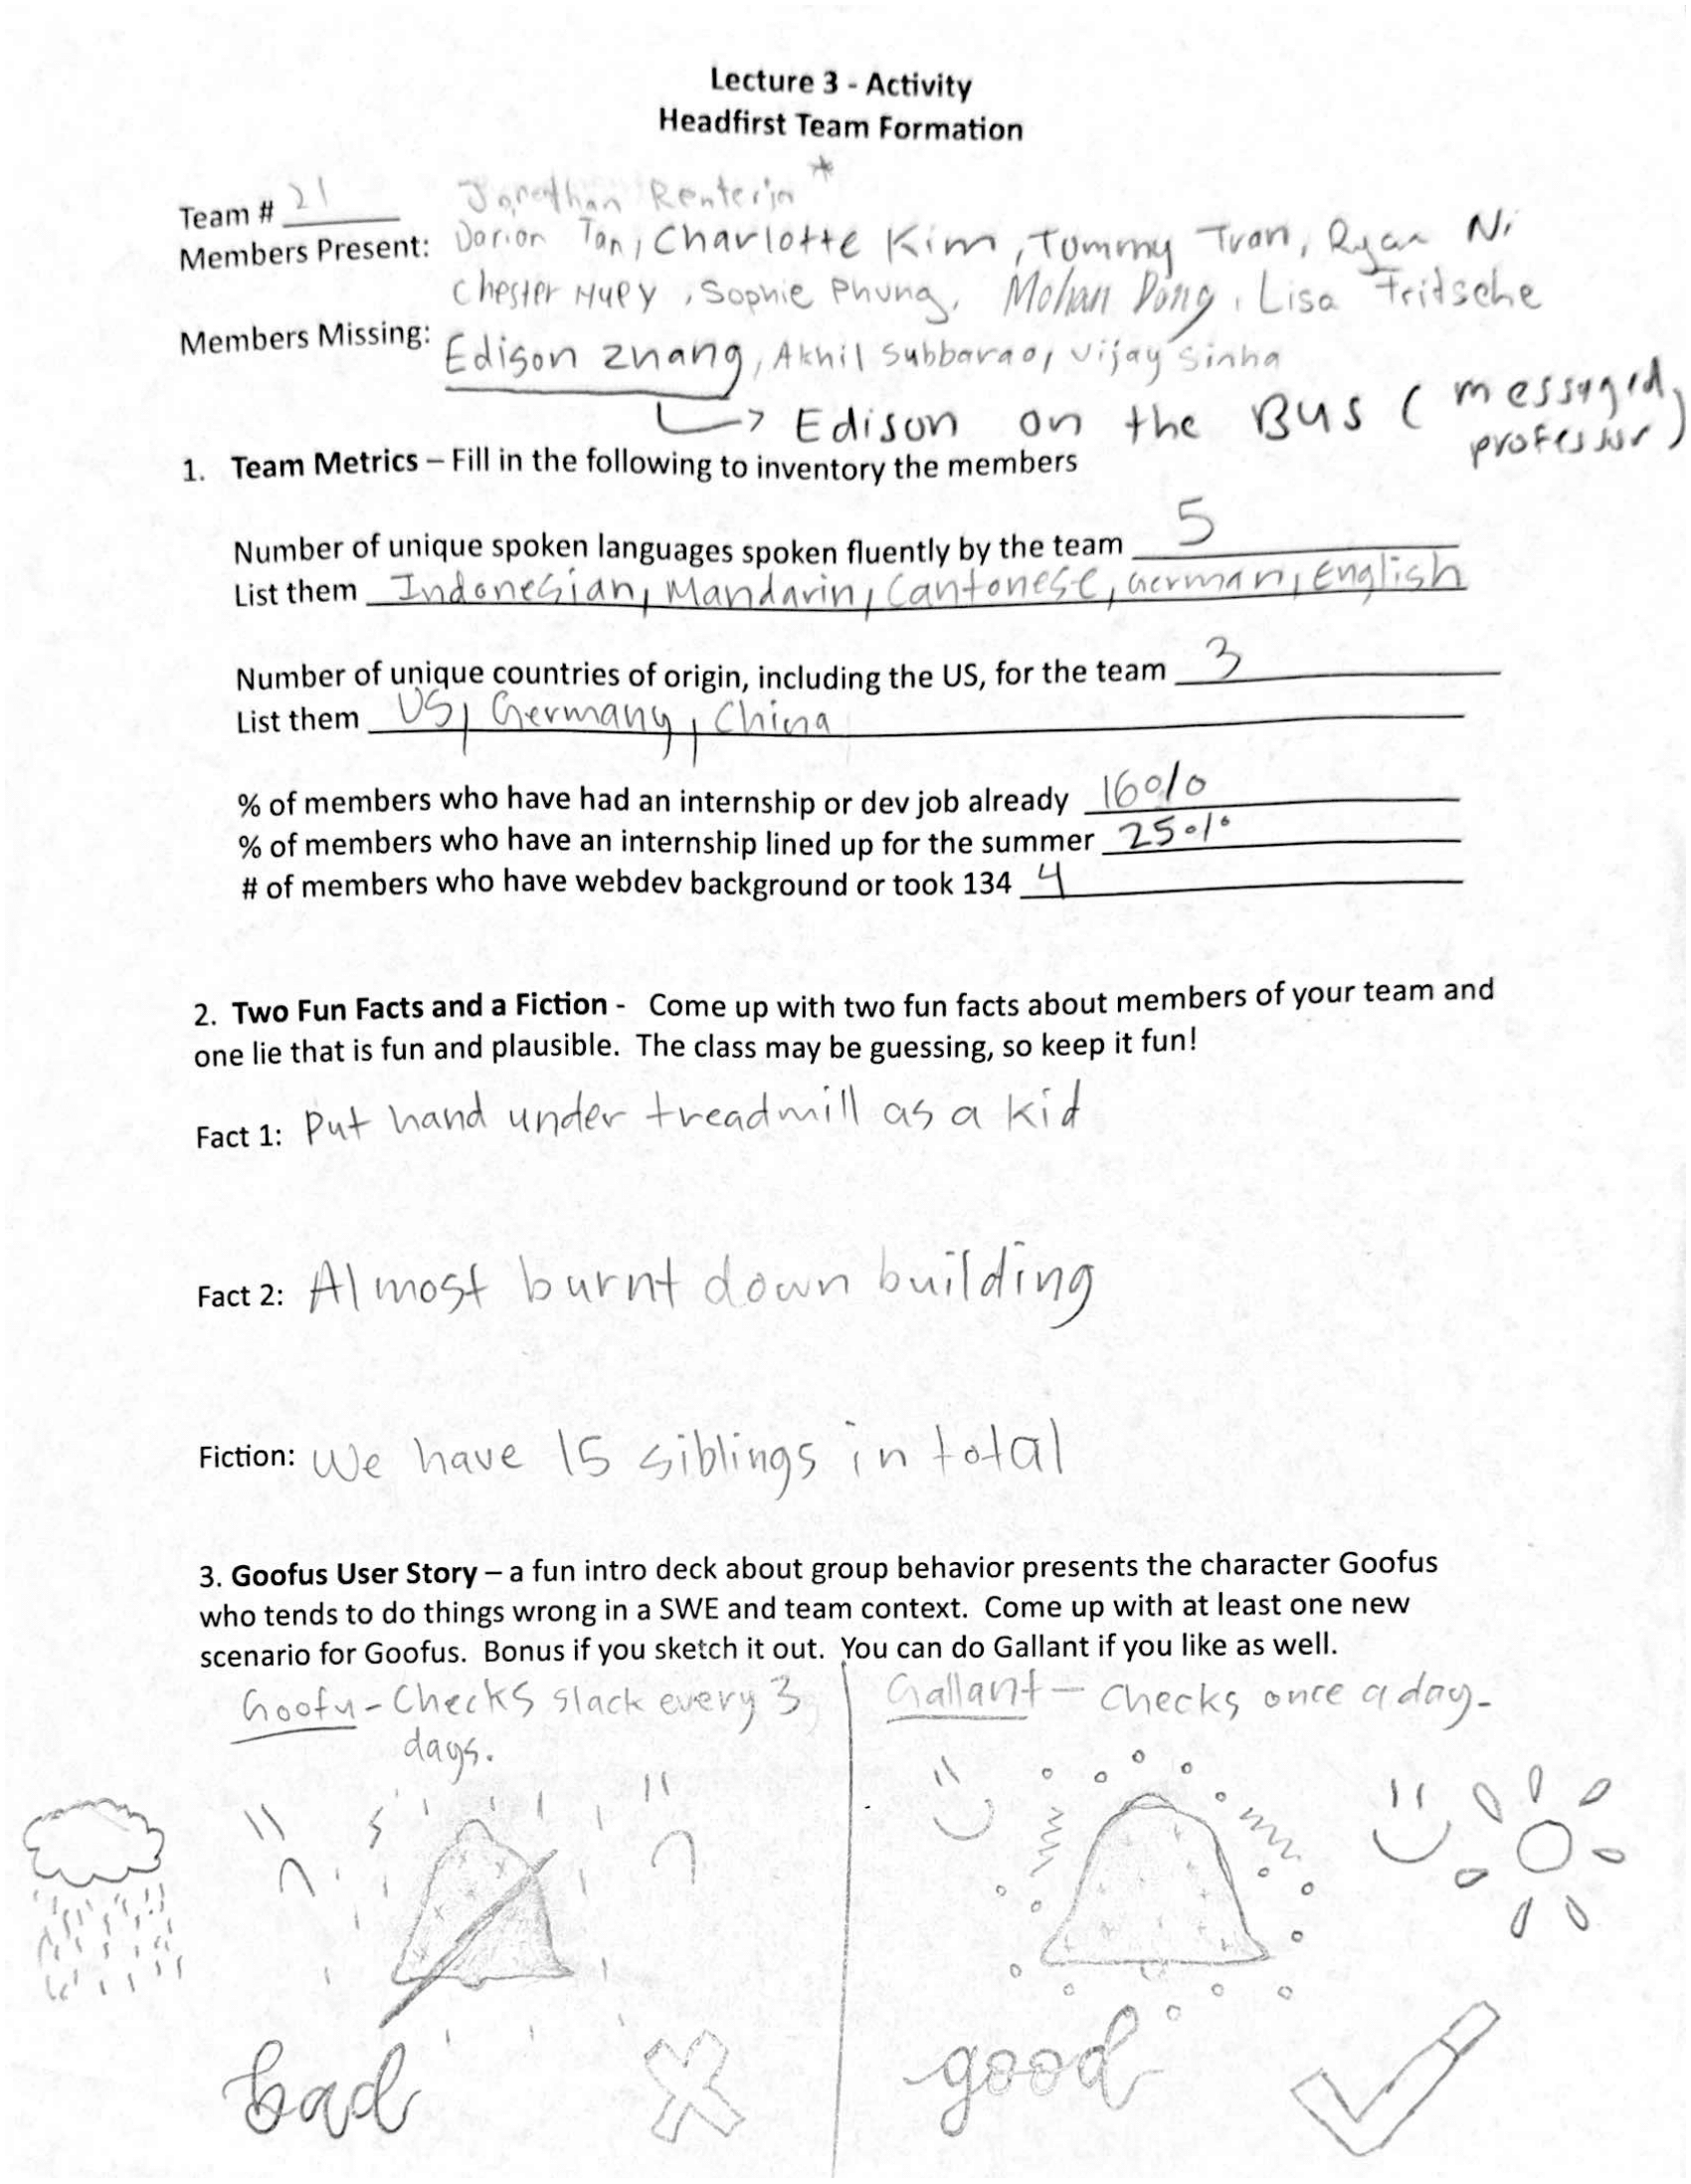 Lecture 3 - Activity
Headfirst Team Formation
Team # 21
Jonathan Renteria *
Members Present: Dorian Tan, Charlotte Kim, Tommy Tran, Ryan Ni
Chester Huey, Sophie Phung, Mohan Dong, Lisa Fritsche
Members Missing: Edison Zhang, Akhil Subbarao, Vijay Sinha
→ Edison on the Bus (messaged professor)
1. Team Metrics – Fill in the following to inventory the members
Number of unique spoken languages spoken fluently by the team 5
List them Indonesian, Mandarin, Cantonese, German, English
Number of unique countries of origin, including the US, for the team 3
List them US, Germany, China
% of members who have had an internship or dev job already 16%
% of members who have an internship lined up for the summer 25%
# of members who have webdev background or took 134 4
2. Two Fun Facts and a Fiction - Come up with two fun facts about members of your team and
one lie that is fun and plausible. The class may be guessing, so keep it fun!
Fact 1: Put hand under treadmill as a kid
Fact 2: Almost burnt down building
Fiction: We have 15 siblings in total
3. Goofus User Story – a fun intro deck about group behavior presents the character Goofus
who tends to do things wrong in a SWE and team context. Come up with at least one new
scenario for Goofus. Bonus if you sketch it out. You can do Gallant if you like as well.
Goofu - Checks slack every 3
days.
Gallant - Checks once a day.
bad
good